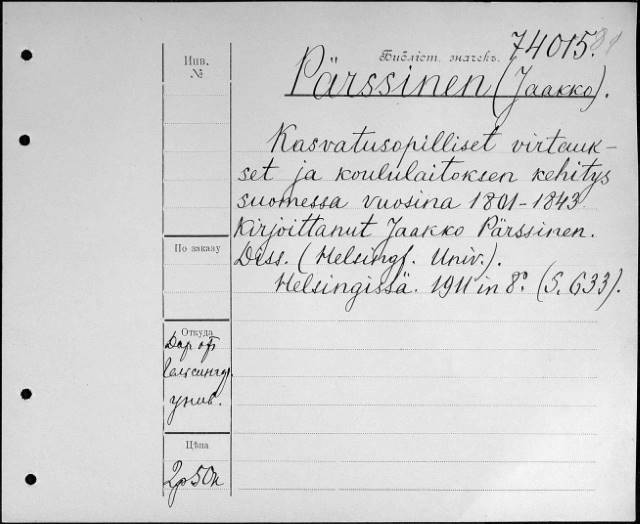 Инв.
№
Библіот. значекъ. 74015.
Pärssinen (Jaakko).
Kasvatusopilliset virtauk-
set ja koululaitoksen kehitys
suomessa vuosina 1801-1843
Kirjoittanut Jaakko Pärssinen.
Diss. (Helsingf. Univ.).
Helsingissä. 1911 in 8°. (S. 633).
По заказу
Откуда
Дар отъ
Гельсингф.
унив.
Цѣна
2р50к